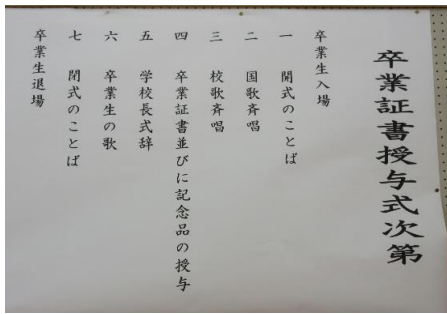 卒業証書授与式次第
卒業生入場
一 開式のことば
二 国歌斉唱
三 校歌斉唱
四 卒業証書並びに記念品の授与
五 学校長式辞
六 卒業生の歌
七 閉式のことば
卒業生退場